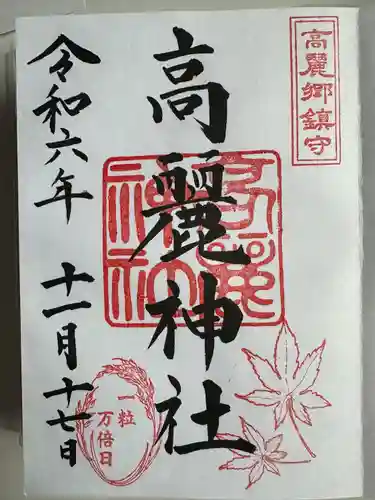 高麗郷鎮守
高麗神社
令和六年 十一月十七日
一粒
万倍日